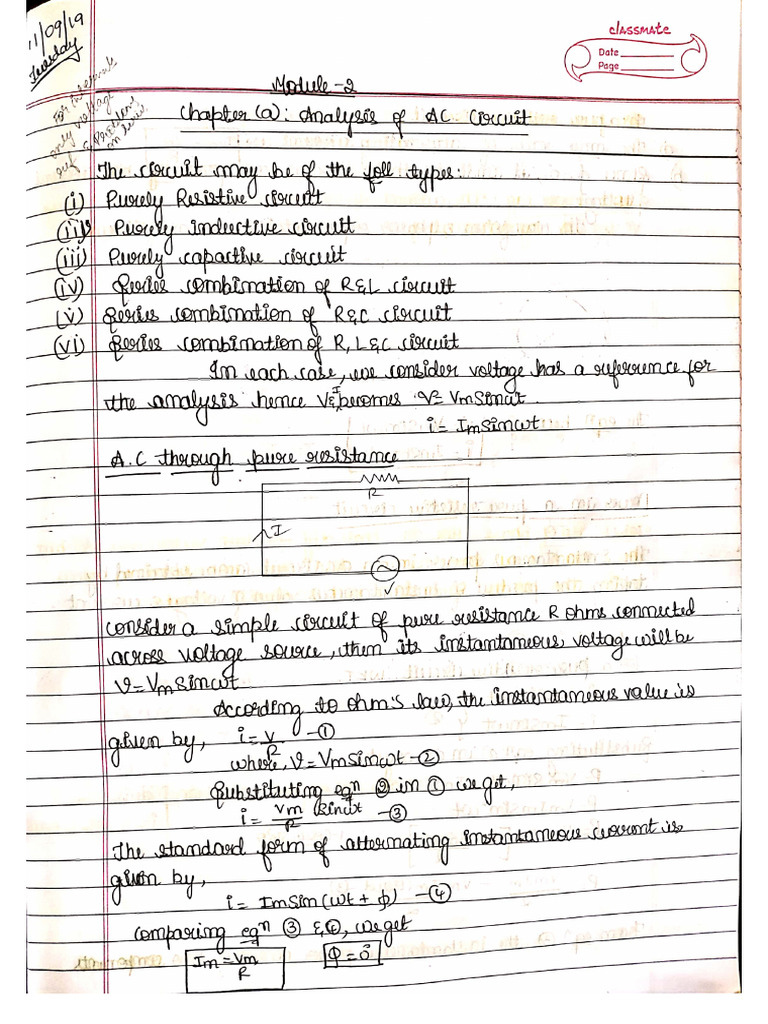 11/09/19
Tuesday
classmate
Date
Page
For internals
only voltage
& Problems
Module-2
Chapter (a): Analysis of AC Circuit
The circuit may be of the foll types:
(i) Purely Resistive circuit
(ii) Purely inductive circuit
(iii) Purely capactive circuit
(iv) Series combination of R&L circuit
(v) Series combination of R&C circuit
(vi) Series combination of R, L&C circuit
In each case, we consider voltage has a reference for
the analysis hence V&I becomes v= Vm Sinωt
i= Im Sinωt
A.C through pure resistance
R
I
~
V
Consider a simple circuit of pure resistance R ohms connected
across voltage source, then its instantaneous, voltage will be
v=Vm Sinωt
According to ohm's law, the instantaneous value is
given by, i= V/R -①
where, v=Vm Sinωt -②
Substituting eqn ② in ① we get,
i= Vm/R (Sinωt -③
The standard form of alternating instantaneous current is
given by,
i= Im Sin (ωt + ϕ) -④
comparing eqn ③ & ④, we get
Im = Vm/R ϕ=0°